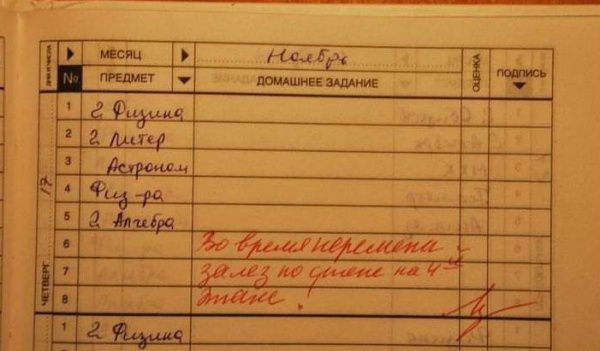 ДНИ И ЧИСЛА МЕСЯЦ Ноябрь ОЦЕНКА ПОДПИСЬ
№ ПРЕДМЕТ ДОМАШНЕЕ ЗАДАНИЕ
1 2 Физика
2 2 Литер
3 Астроном
4 Физ-ра
5 2 Алгебра
6 Во время перемена
7 залез по стене на 4ый
8 этаж!
17
ЧЕТВЕРГ
1 2 Физика